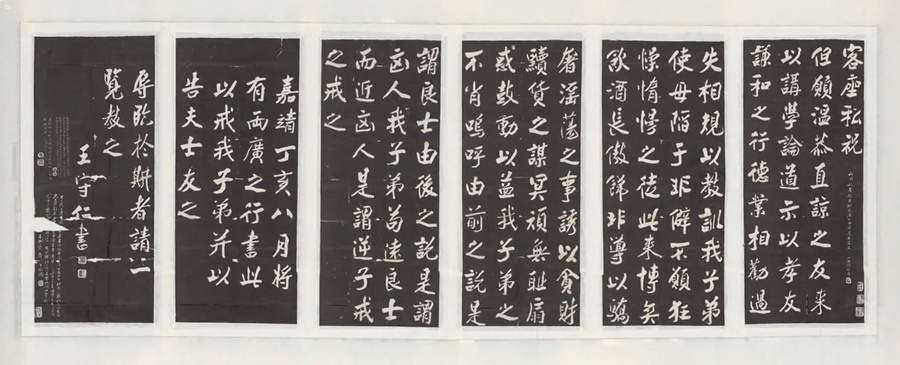 客座私祝
但願溫恭直諒之友来
以講學論道示以孝友
謙和之行德業相勸過
失相規以教訓我子弟
使毋陷于非僻不願狂
懆惰慢之徒此来博奕
飲酒長傲餙非導以驕
奢淫蕩之事誘以貪財
黷貨之謀冥頑無耻扇
惑鼓動以益我子弟之
不肖嗚呼由前之説是
謂良士由後之説是謂
凶人我子弟苟遠良士
而近凶人是謂逆子戒
之戒之
嘉靖丁亥八月將
有兩廣之行書此
以戒我子弟并以
告夫士友之
辱臨於斯者請一
覽教之
王守仁書